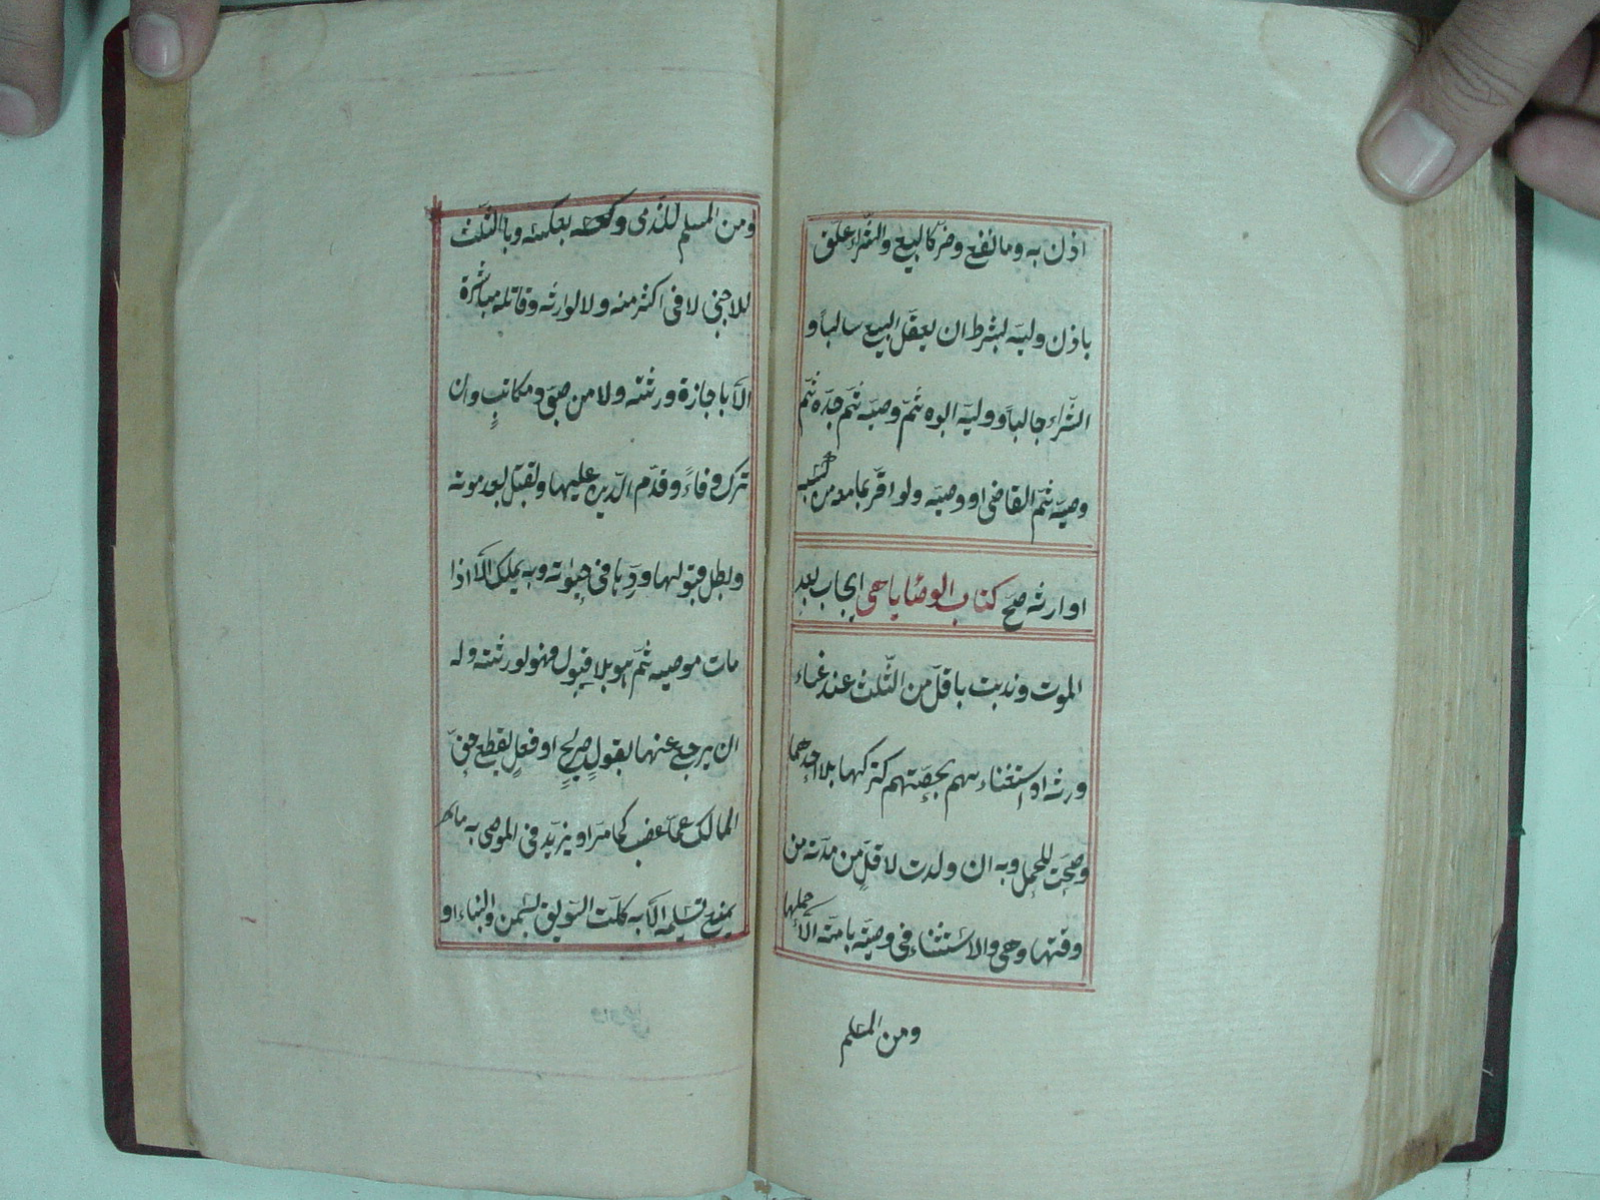 اذن به وما نفع وضر كالبيع والشراء علق
باذن وليه بشرط ان يعقل البيع سالباً و
الشّراء جالباً ووليه ابوه ثمّ وصيّه ثمّ جدّه ثمّ
وصيّه ثمّ القاضى او وصيّه ولو اقرّ بما معه من كسبه
او ارثه صحّ كتاب الوصايا هى ايجاب بعد
الموت وندبت باقلّ من الثّلث عند غناء
ورثه او استغناءهم بحصّتهم كتركها بلا احدهما
وصحّت للحمل وبه ان ولدت لاقلّ من مدّته من
وقتها وهى والاستثناء فى وصيّة بامته الا حملها
ومن المسلم
ومن المسلم للذّمى وكعحه بعكسه وبالثّلث
للاجنبى لا فى اكثر منه ولا لوارثه وقاتله مباشرة
الّا باجازة ورثته ولا من صبىّ ومكاتبٍ وان
ترك وفاءً وقدّم الدّين عليها وتقبل بعد موته
وبطل قبولها وردّها فى حيوته وبه يملك الّا اذا
مات موصيه ثمّ هو بلا قبول فهو لورثته وله
ان يرجع عنها بقولٍ صريحٍ او فعلٍ يقطع حقّ
المالك عمّا غصب كما مرّ او يزيد فى الموصى به ما
يمنع تسليمه الّا به كلتّ السّويق بسمن والبناء او